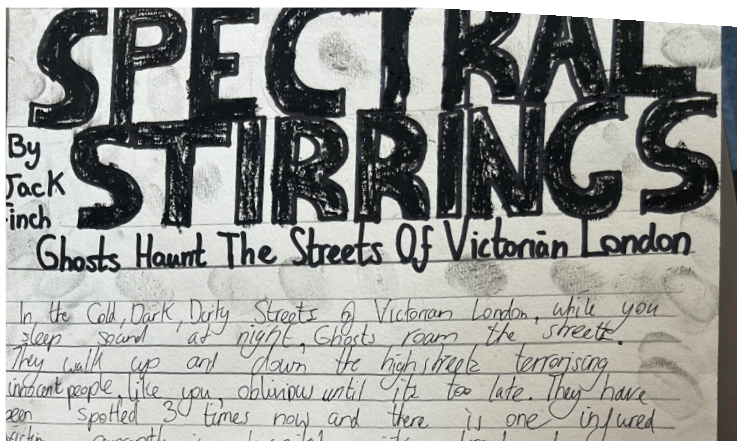 SPECTRAL
STIRRINGS
By
Jack
inch
Ghosts Haunt The Streets Of Victorian London
In the Cold, Dark, Dirty Streets of Victorian London, while you
sleep sound at night, Ghosts roam the streets.
They walk up and down the high streets terrorising
innocent people, like you, oblivious until its too late. They have
een spotted 3 times now and there is one injured